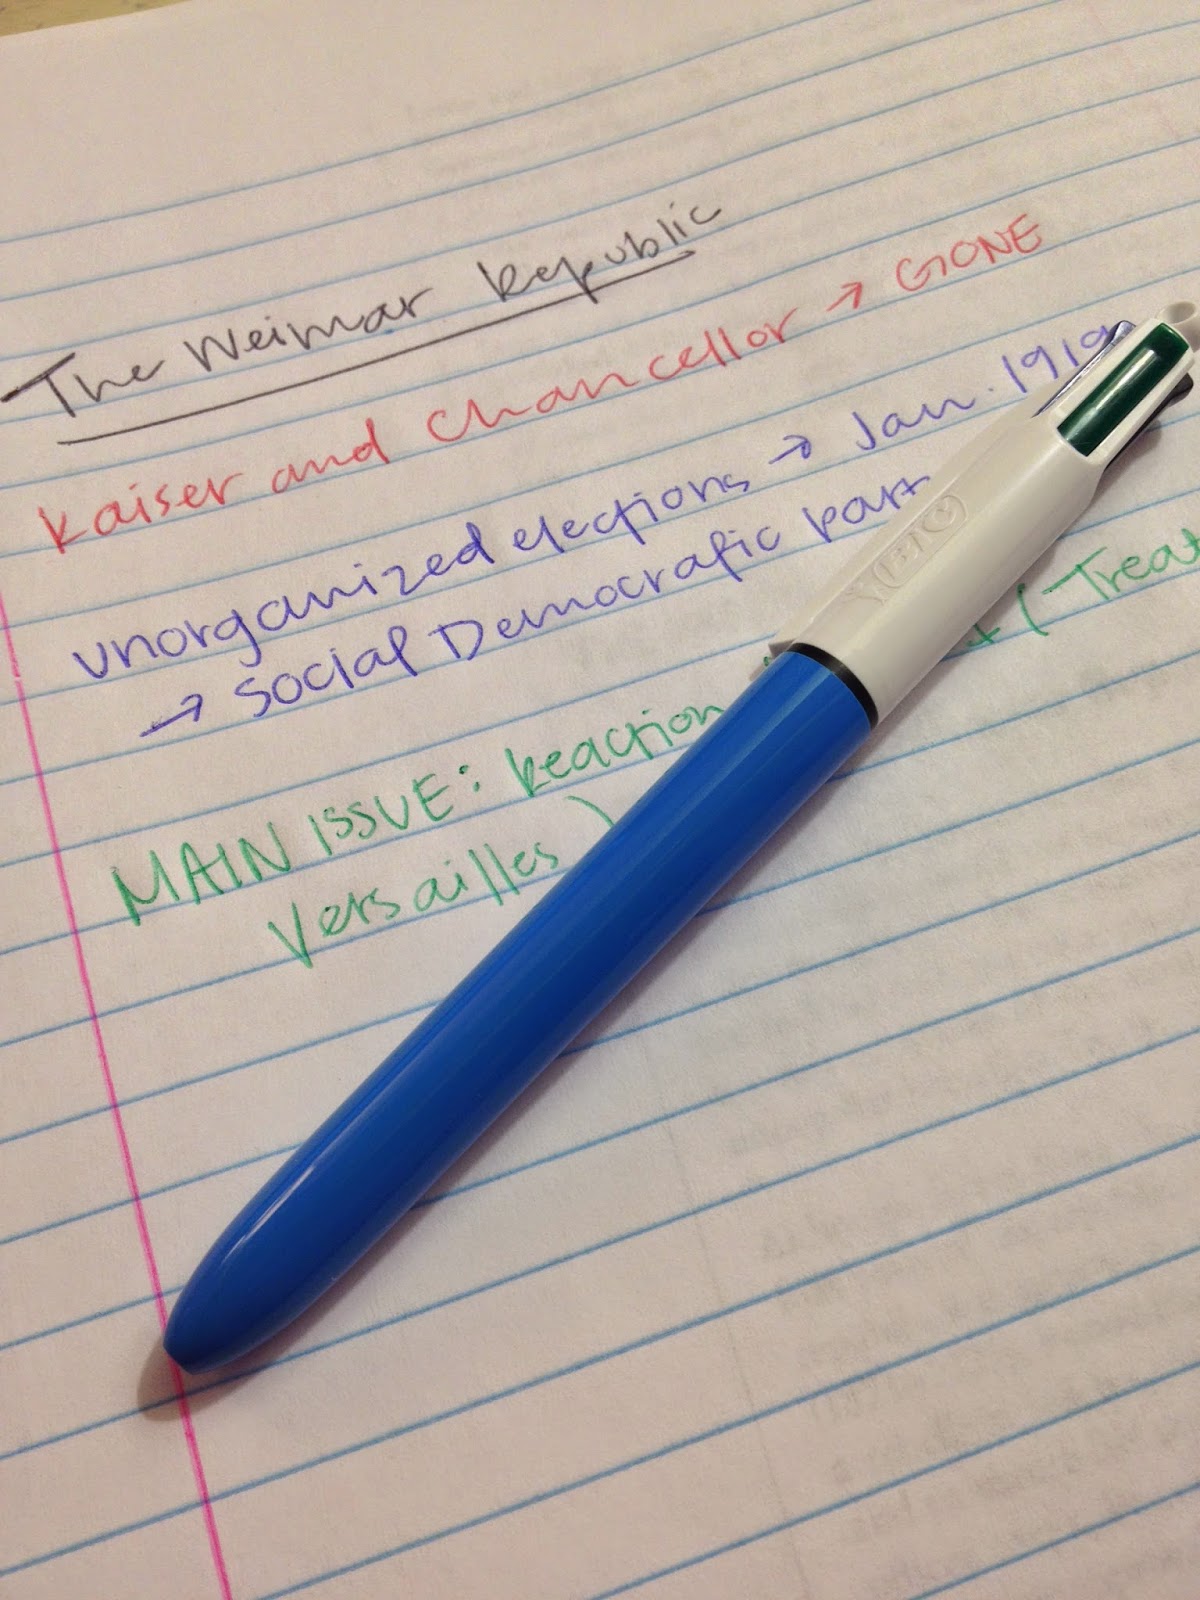 The Weimar Republic
Kaiser and Chancellor → GONE
unorganized elections → Jan. 1919
→ Social Democratic
MAIN ISSUE: Reaction (Treat
Versailles)
BIC